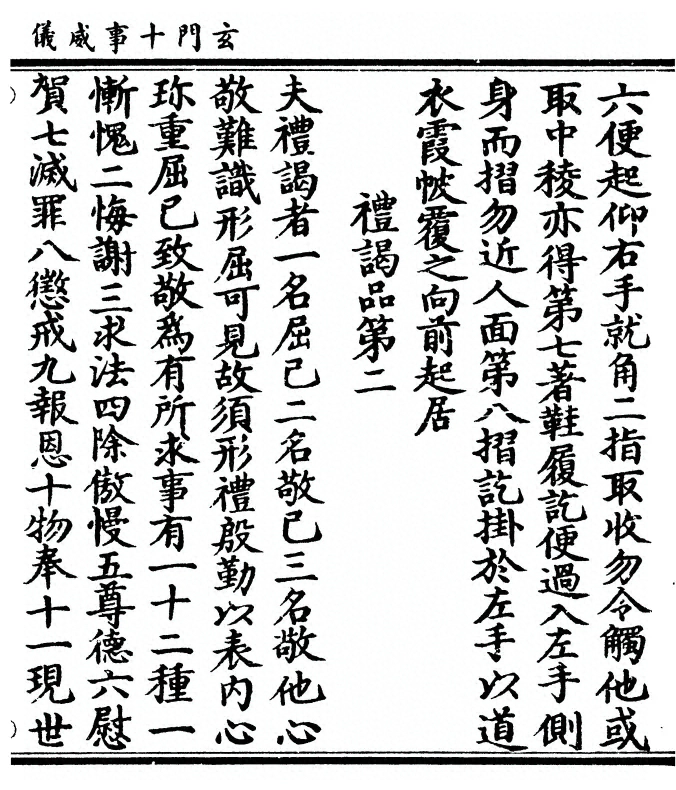 玄門十事威儀
六便起仰右手就角二指取收勿令觸他或
取中稜亦得第七著鞋履訖便過入左手側
身而摺勿近人面第八摺訖掛於左手以道
衣霞帔覆之向前起居
禮謁品第二
夫禮謁者一名屈己二名敬己三名敬他心
敬難識形屈可見故須形禮殷勤以表内心
珎重屈已致敬爲有所求事有一十二種一
慚愧二悔謝三求法四除傲慢五尊德六慰
賀七滅罪八懲戒九報恩十物奉十一現世